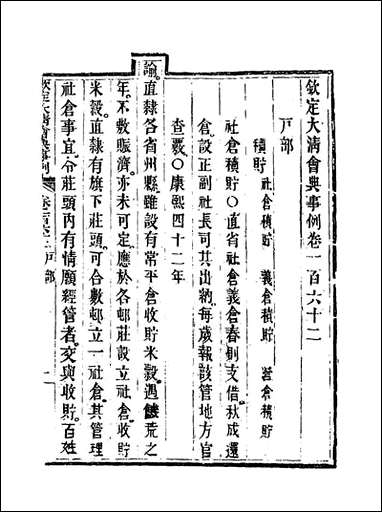 欽定大清會典事例卷一百六十二
戸部
積貯 社倉積貯 義倉積貯 營倉積貯
社倉積貯○直省社倉義倉春則支借秋成還
倉設正副社長司其出納每歲報該管地方官
查覈○康熙四十二年
諭直隸各省州縣雖設有常平倉收貯米穀遇饑荒之
年不敷賑濟亦未可定應於各邨莊設立社倉收貯
米穀直隸有旗下莊頭可合數邨立一社倉其管理
社倉事宜令莊頭內有情願經管者交與收貯百姓
欽定大清會典事例 戸部 一